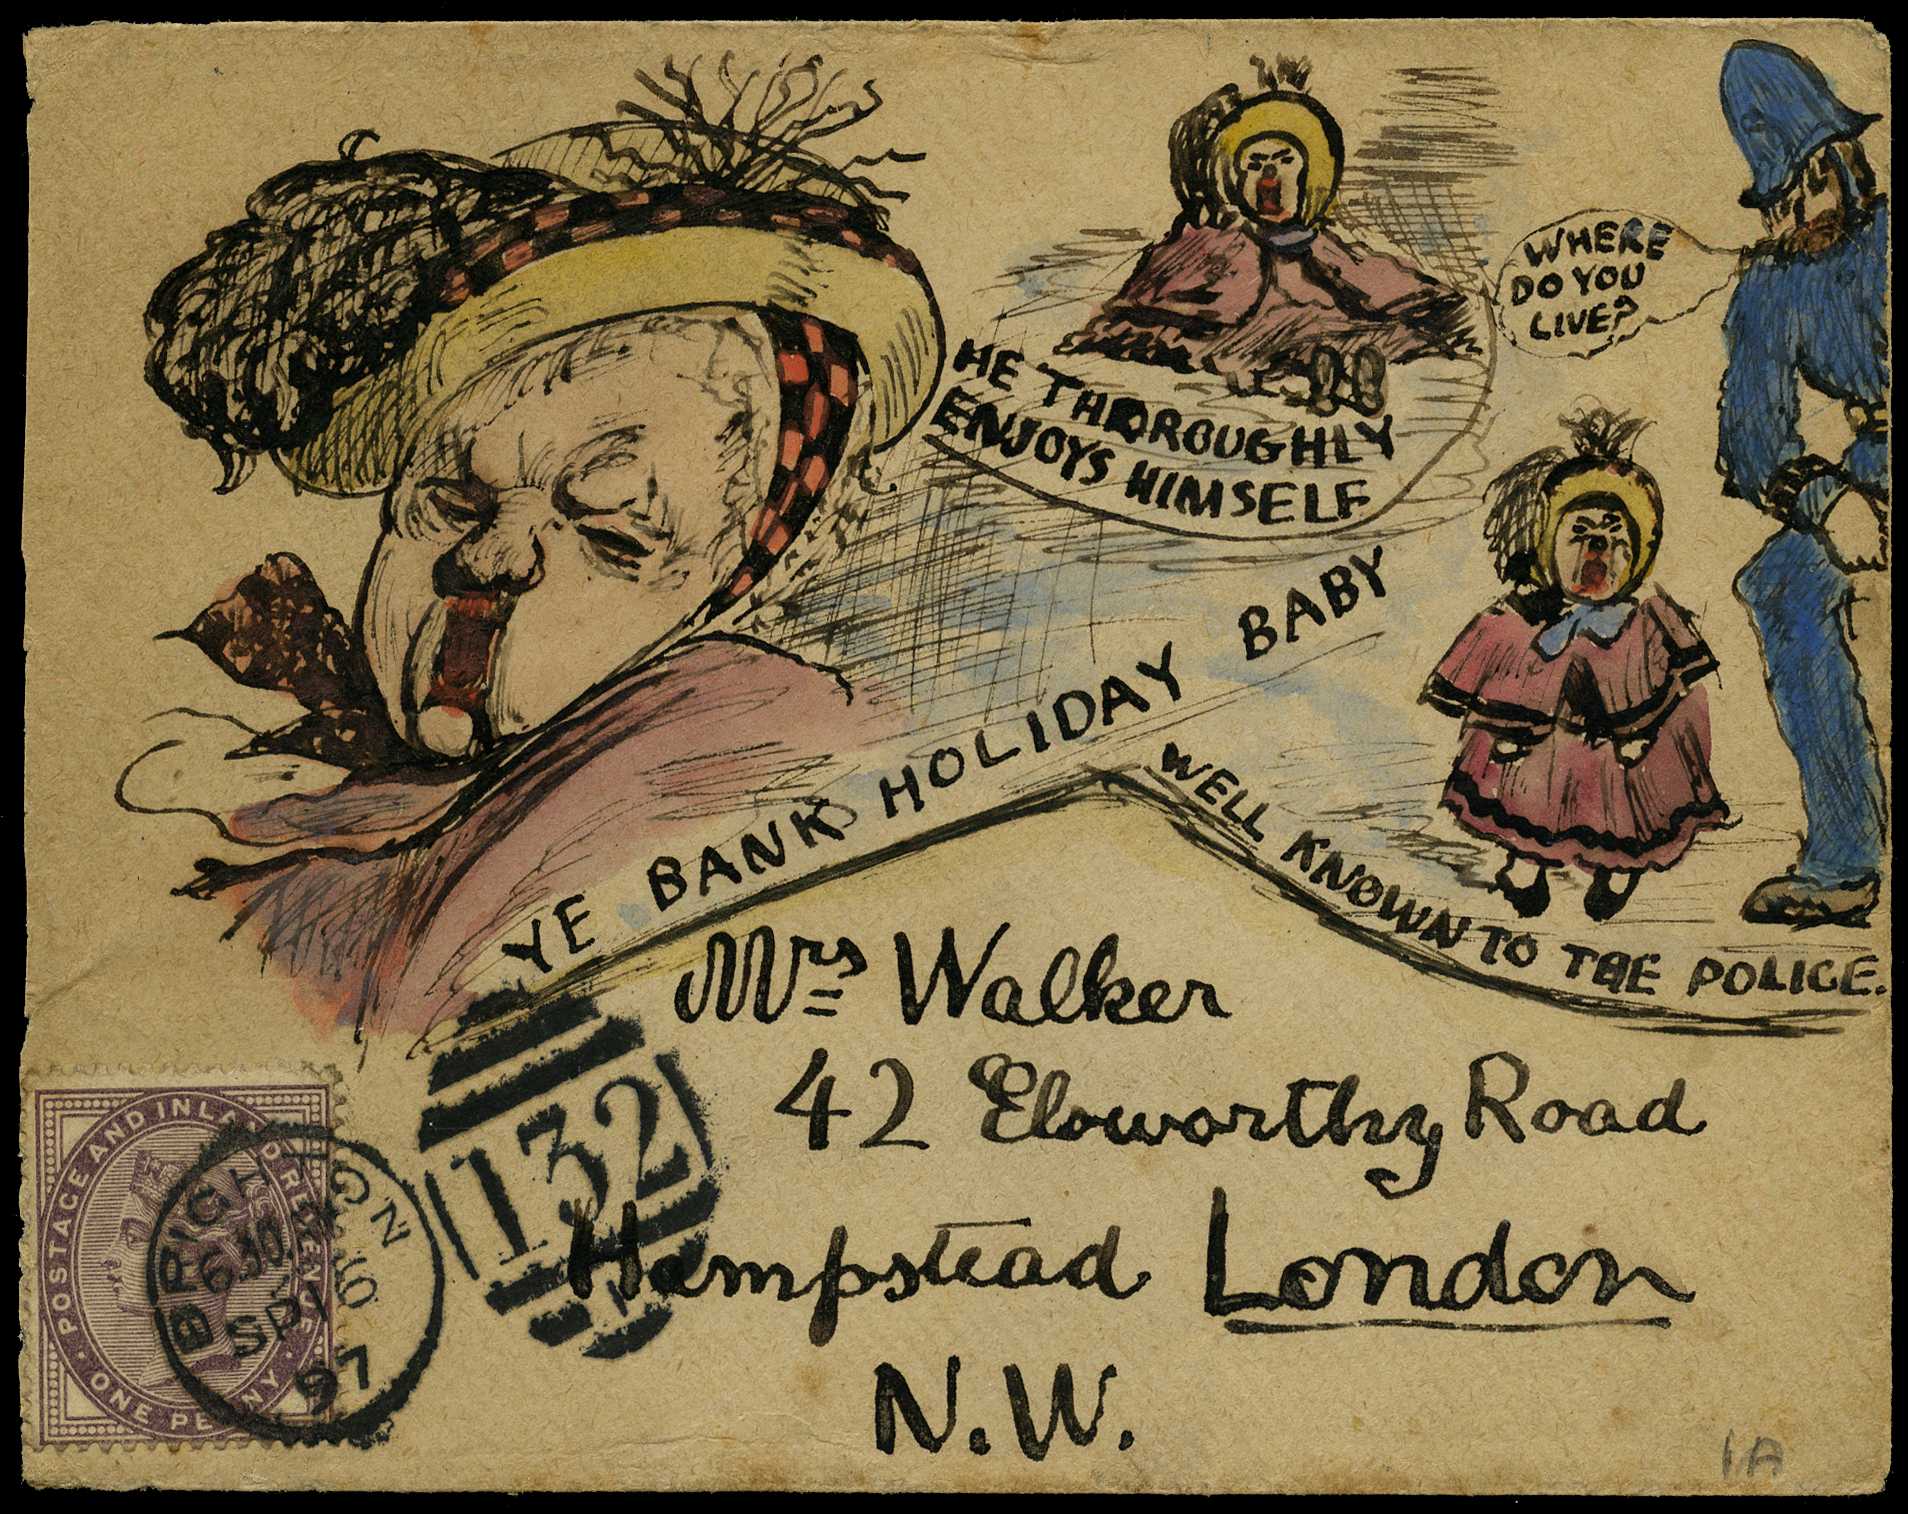 WHERE
DO YOU
LIVE?
HE THOROUGHLY
ENJOYS HIMSELF
YE BANK HOLIDAY BABY
WELL KNOWN TO THE POLICE.
Mrs Walker
42 Elsworthy Road
Hampstead London
N.W.
132
POSTAGE AND INLAND REVENUE
ONE PENNY
BRIGHTON
6 30
SP 16
97
1A